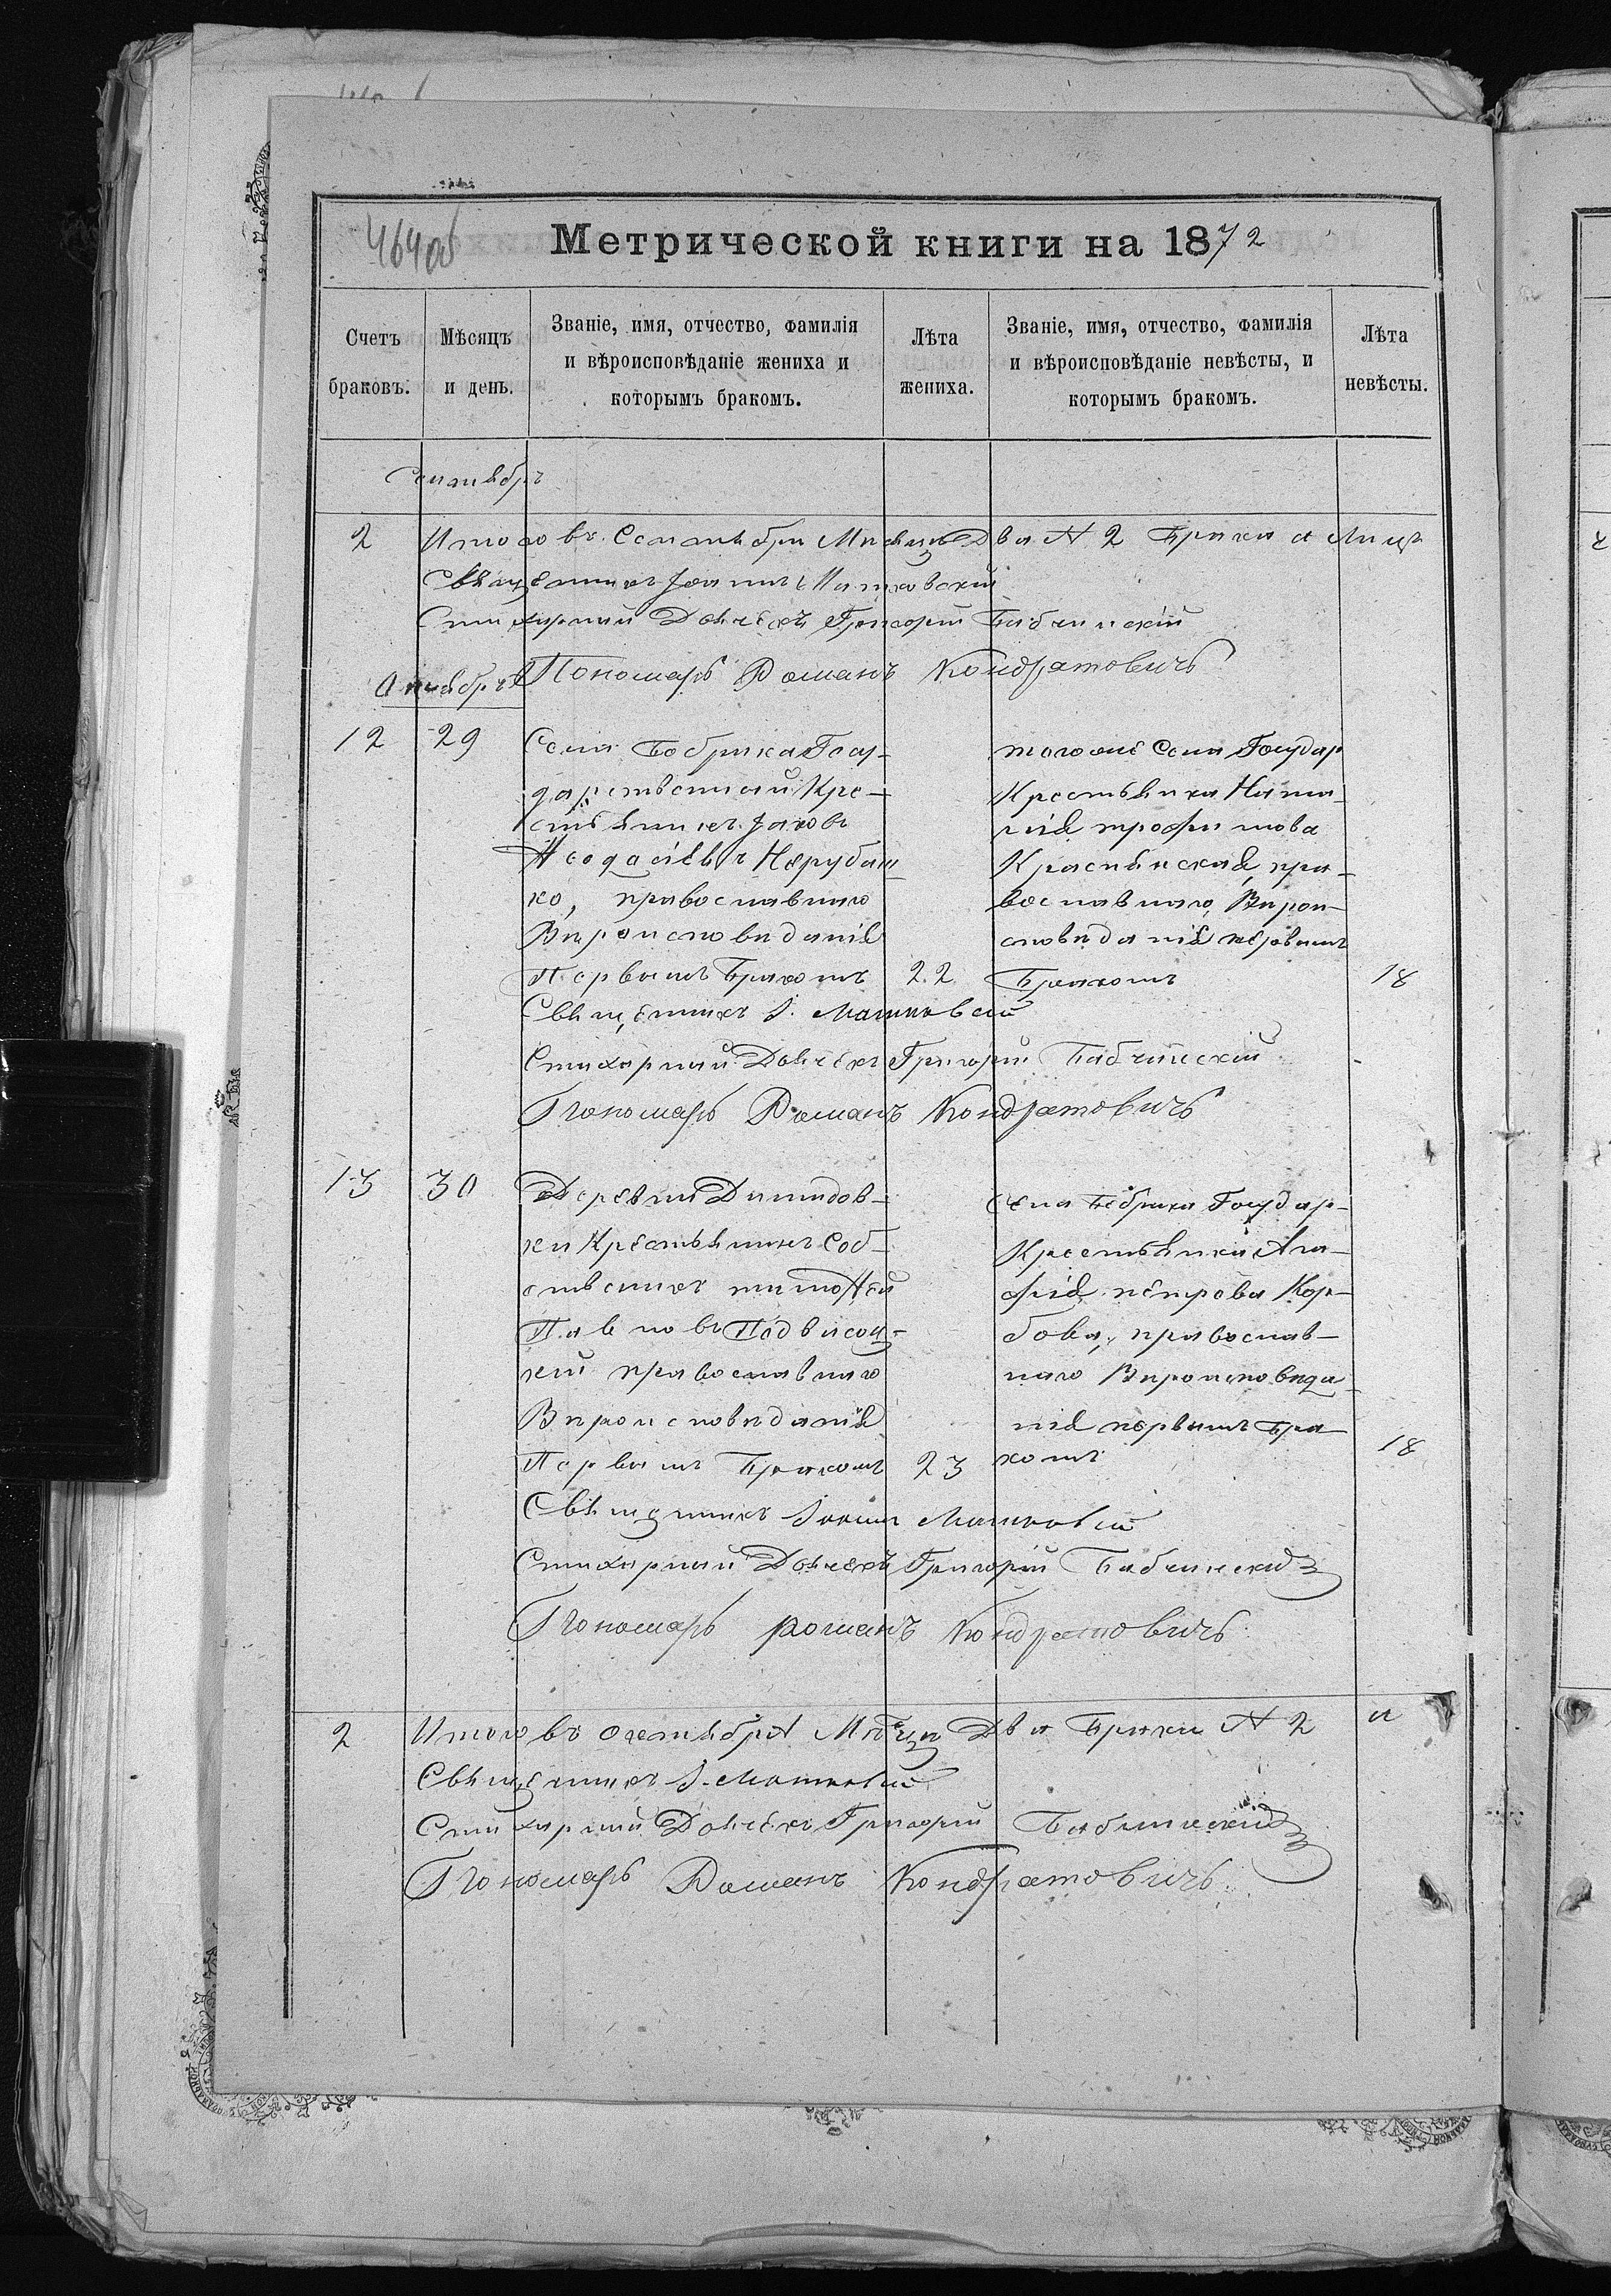 464об
Метрической книги на 1872
Счетъ браковъ.
Мѣсяцъ и день.
Званіе, имя, отчество, фамилія и вѣроисповѣданіе жениха и которымъ бракомъ.
Лѣта жениха.
Званіе, имя, отчество, фамилія и вѣроисповѣданіе невѣсты, и которымъ бракомъ.
Лѣта невѣсты.
Сентябрь
2 Итого въ Сентябри Мисяцъ Два № 2 Брака и Лицъ
Священникъ Іоаннъ Матковскій
Стихарный Дьячекъ Григорій Бабчинскій
Пономарь Романъ Кондратовичъ
Октябрь
12 29
Села Бобрика Госу-
дарственный Кре-
стьянинъ Іаковъ
Нерубаш-
ко, православнаго
Вироисповиданія
Первымъ Бракомъ 22
тогоже Села Государ
Крестьянка Ната-
лія трофимова
Красплнская, пра-
вославнаго, Вирои-
сповиданія первымъ
Бракомъ 18
Священникъ І. Матковскій
Стихарный Дьячекъ Григорій Бабчинскій
Пономарь Романъ Кондратовичъ
13 30
Деревни Димидов-
ки Крестьянинъ Соб-
ственникъ тимофей
Павловъ Подвисоц-
кій православнаго
Вироисповиданія
Первымъ Бракомъ 23
Села Бобрика Государ-
Крестьянка Ага-
фія петрова Кор-
бова, православ-
наго Вироисповида-
нія первымъ Бра-
комъ 18
Священникъ Іоаннъ Матковскій
Стихарный Дьячекъ Григорій Бабчинскій
Пономарь романъ Кондратовичъ
2 Итого въ октябрѣ Мѣсяцѣ Два Брака № 2 и
Священникъ І. Матковскій
Стихарный Дьячекъ Григорій Бабчинскій
Пономарь Романъ Кондратовичъ